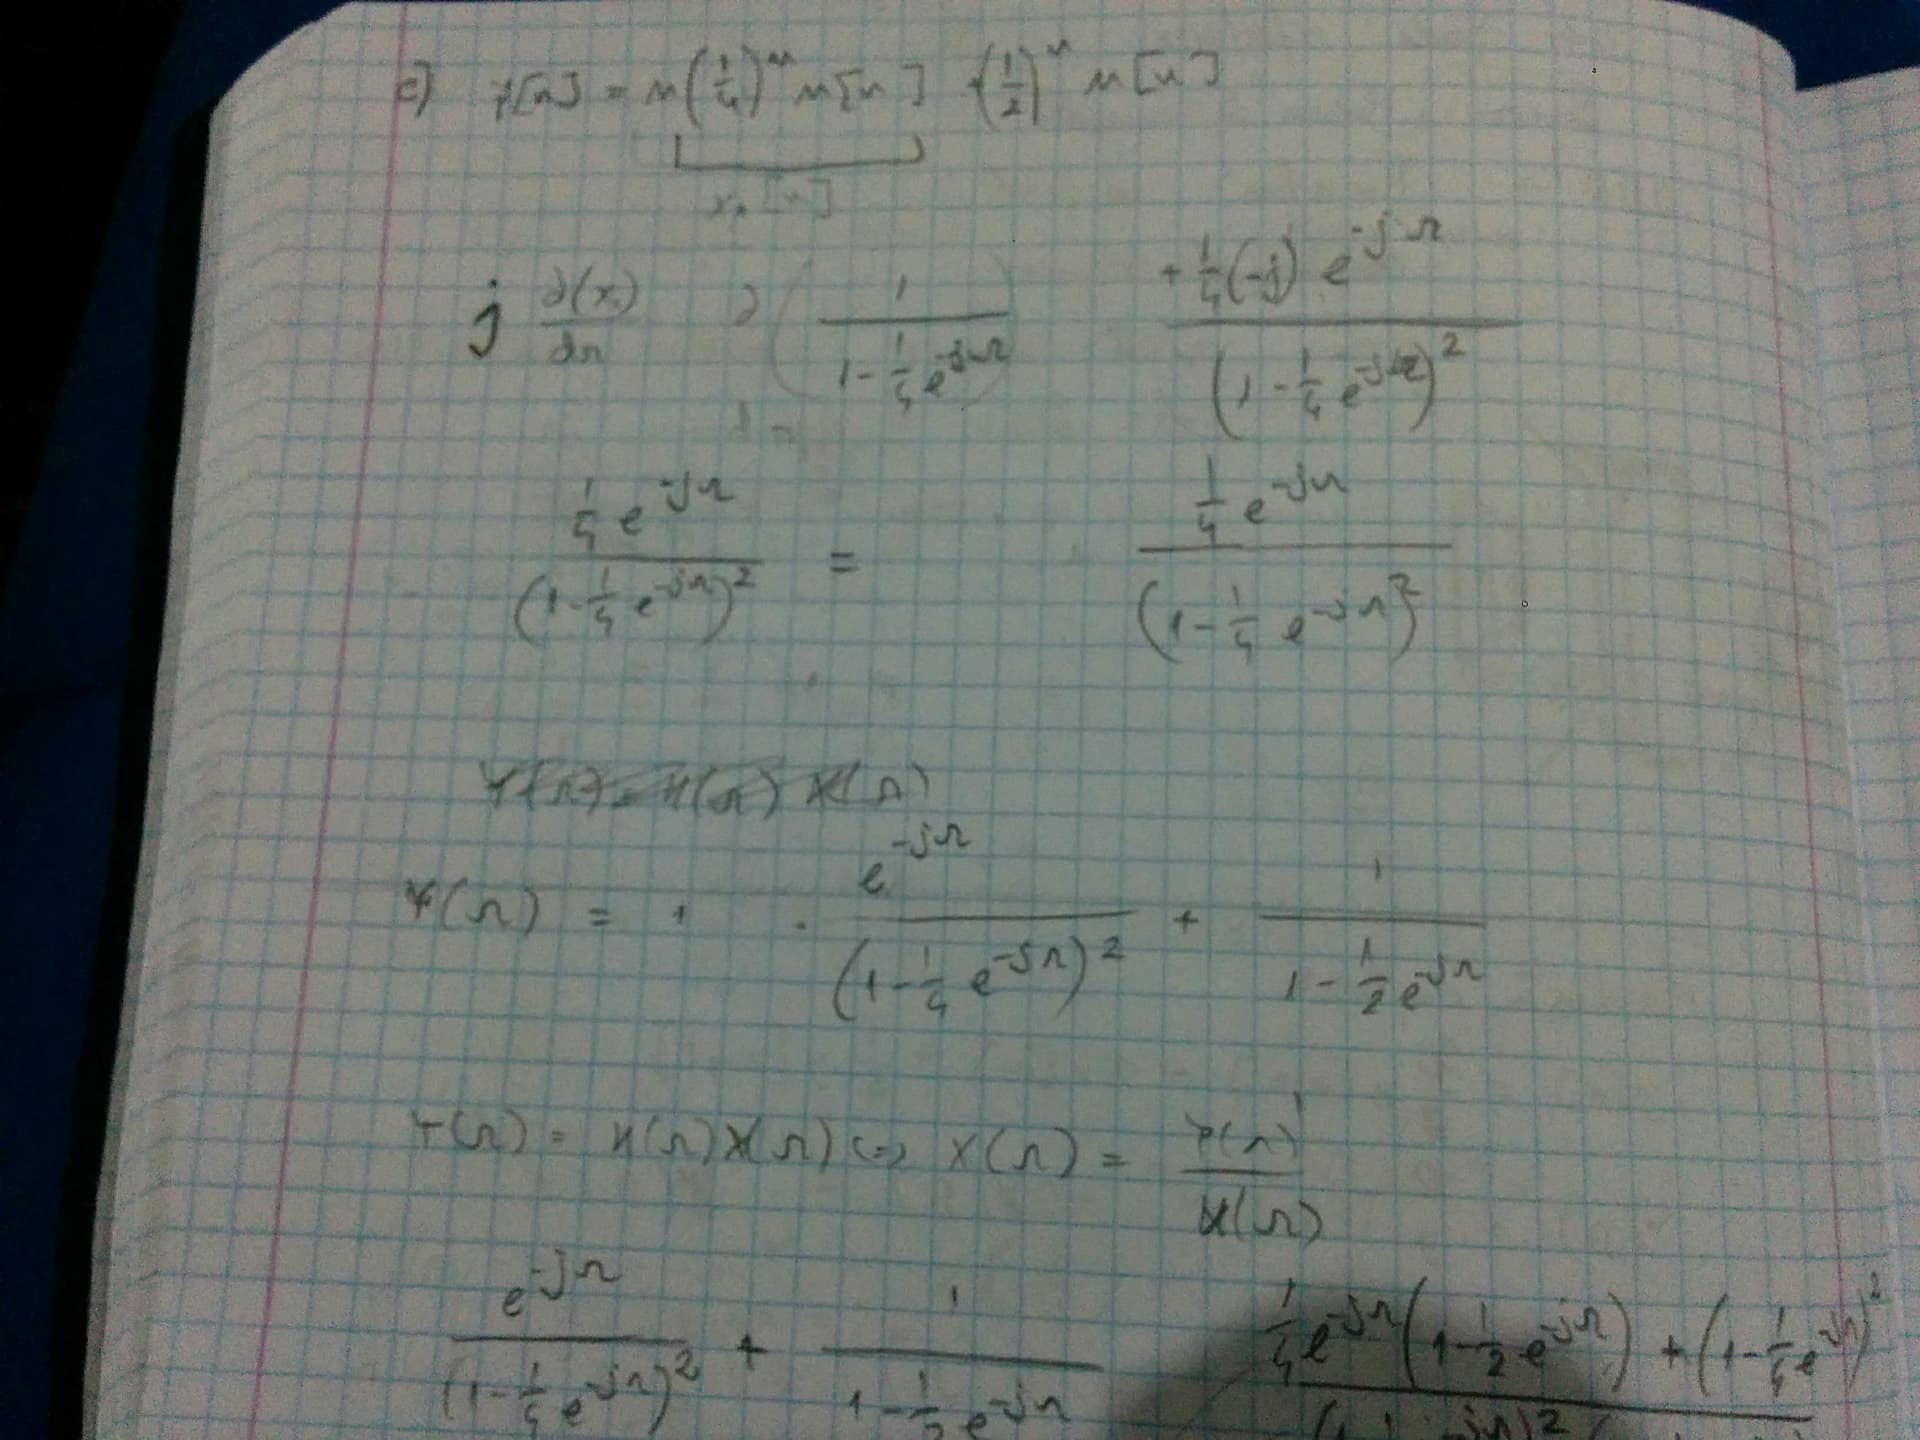 c) y[n] = n(1/4)^n u[n] + (1/2)^n u[n]
x₁[n]
j ∂(x₁)/∂Ω ∂(1/(1-1/4 e^-jΩ)) + 1/4(-j) e^-jΩ/(1-1/4 e^-jΩ)^2
1/4 e^-jΩ/(1-1/4 e^-jΩ)^2 = 1/4 e^-jΩ/(1-1/4 e^-jΩ)^2
Y(Ω) = H(Ω) X(Ω)
Y(Ω) = 1 · e^-jΩ/(1-1/4 e^-jΩ)^2 + 1/(1-1/2 e^-jΩ)
Y(Ω) = H(Ω)X(Ω) <=> X(Ω) = Y(Ω)/H(Ω)
e^-jΩ/(1-1/4 e^-jΩ)^2 + 1/(1-1/2 e^-jΩ) 1/4 e^-jΩ(1-1/2 e^-jΩ) + (1-1/4 e^-jΩ)^2